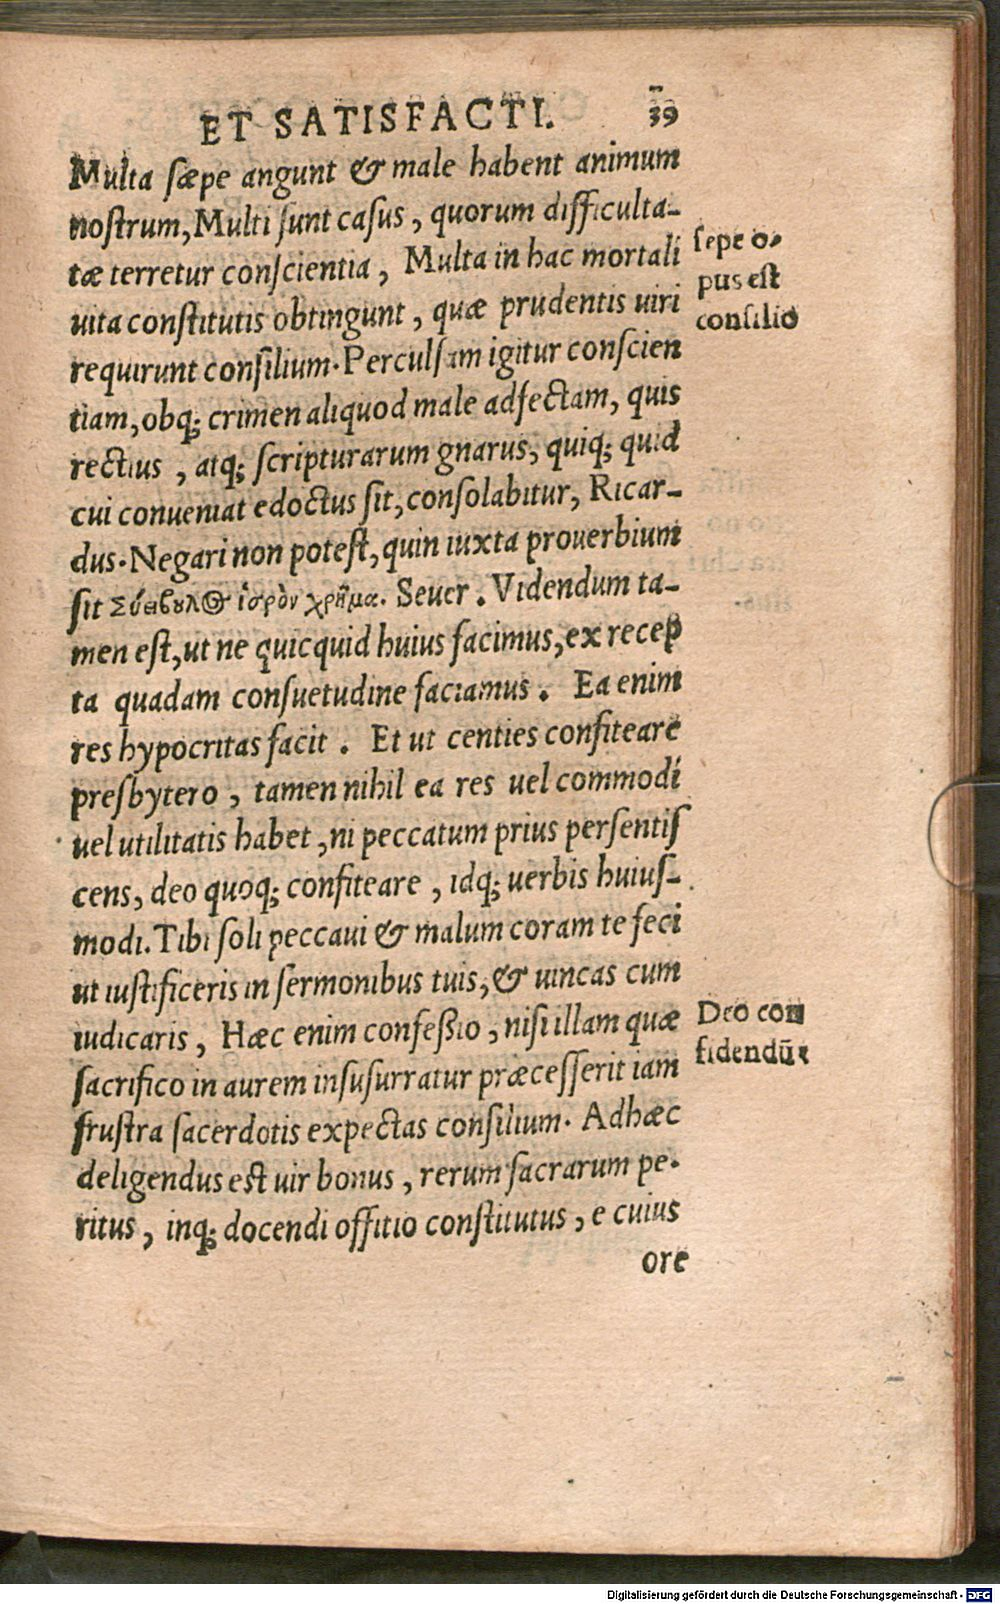 ET SATISFACTI. 39
Multa sæpe angunt & male habent animum
nostrum, Multi sunt casus, quorum difficulta-
tæ terretur conscientia, Multa in hac mortali
uita constitutis obtingunt, quæ prudentis uiri
requirunt consilium. Perculsam igitur conscien
tiam, obq; crimen aliquod male adfectam, quis
rectius, atq; scripturarum gnarus, quiq; quid
cui conueniat edoctus sit, consolabitur, Ricar-
dus. Negari non potest, quin iuxta prouerbium
sit Σύμβουλος ἱερὸν χρῆμα. Seuer. Videndum ta-
men est, ut ne quicquid huius facimus, ex recep
ta quadam consuetudine faciamus. Ea enim
res hypocritas facit. Et ut centies confiteare
presbytero, tamen nihil ea res uel commodi
uel utilitatis habet, ni peccatum prius persentis
cens, deo quoq; confiteare, idq; uerbis huius-
modi. Tibi soli peccaui & malum coram te feci
ut iustificeris in sermonibus tuis, & uincas cum
iudicaris, Hæc enim confeßio, nisi illam quæ
sacrifico in aurem insusurratur præcesserit iam
frustra sacerdotis expectas consilium. Adhæc
deligendus est uir bonus, rerum sacrarum pe-
ritus, inq; docendi offitio constitutus, e cuius
ore
sepe o-
pus est
consilio
Deo con
fidendũ
Digitalisierung gefördert durch die Deutsche Forschungsgemeinschaft - DFG